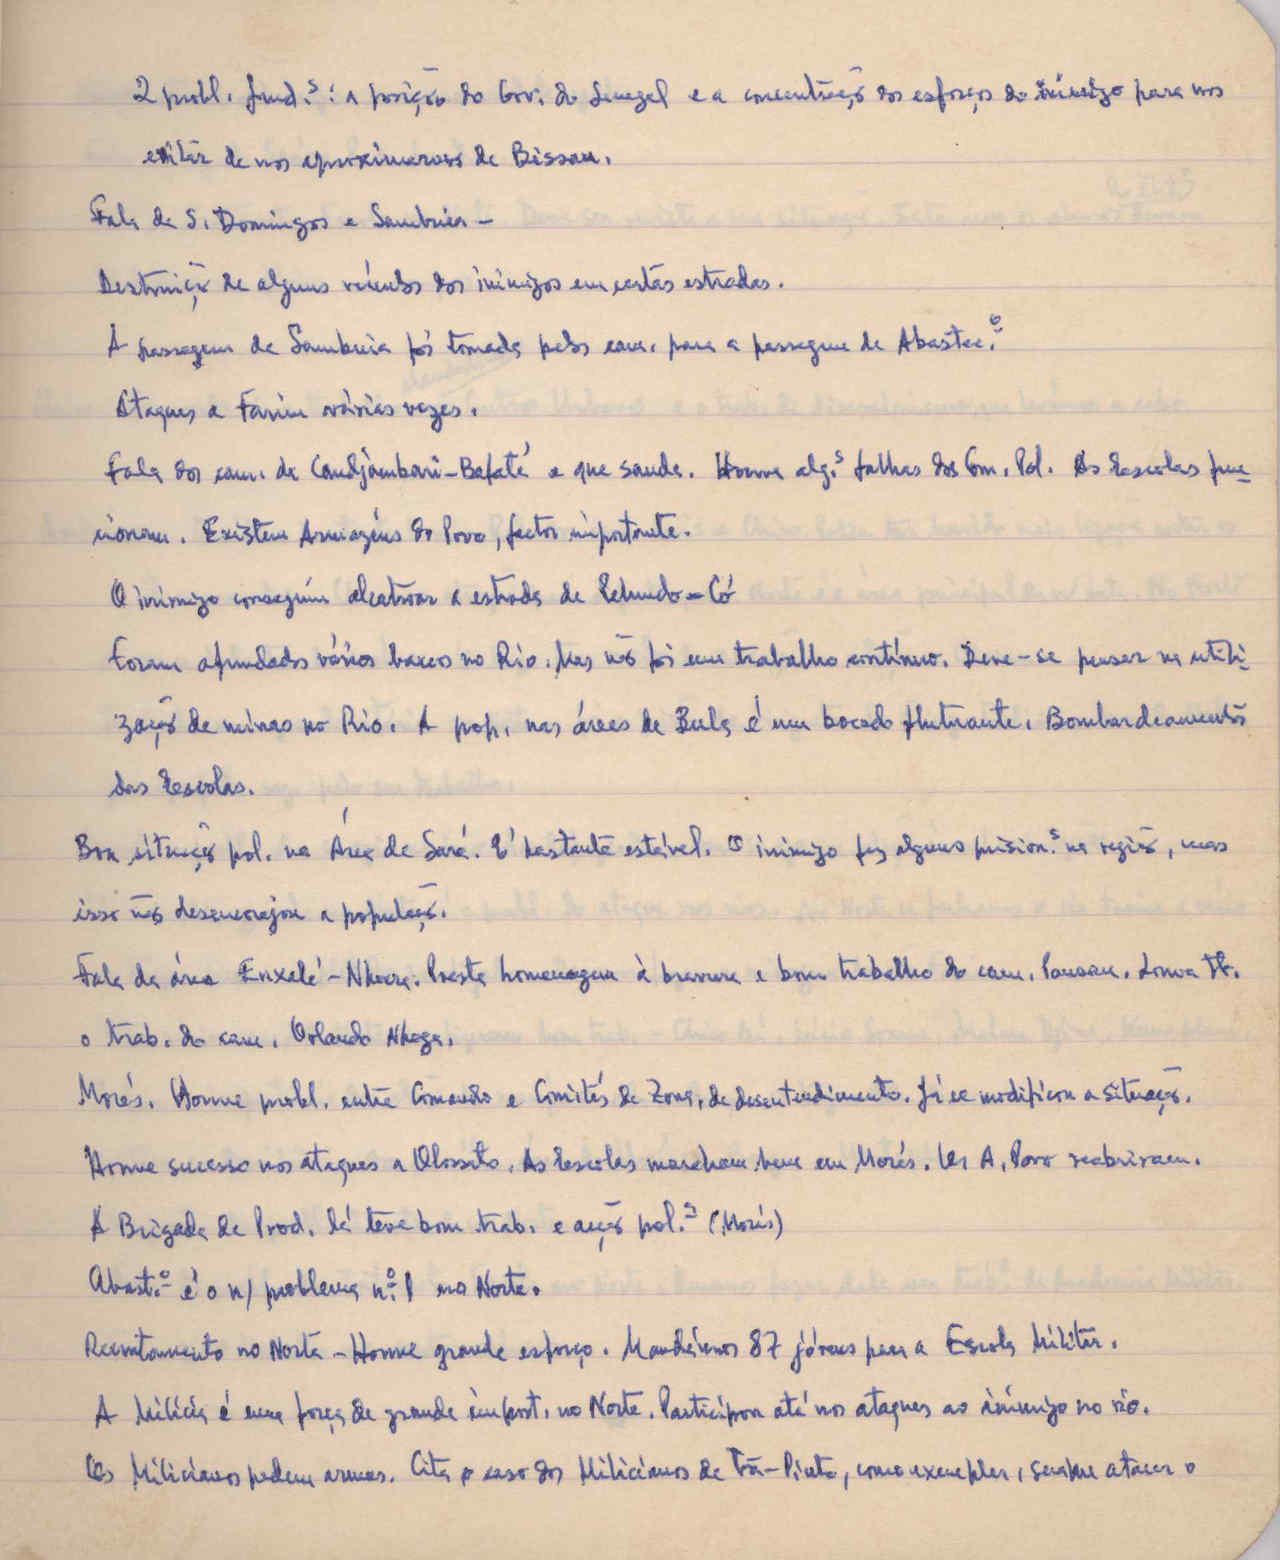 2 probl. fund.s: a posição do Gov. do Senegal e a concentração dos esforços do inimigo para nos
evitar de nos aproximarmos de Bissau.
Fala de S. Domingos e Sambuia -
Destruição de alguns veículos dos inimigos em certas estradas.
A passagem de Sambuia foi tomada pelos cam. para a passagem de Abastec.o
Ataques a Farim várias vezes.
Fala dos cam. de Candjambari-Bafatá e que sauda. Houve alg.s falhas dos Com. Pol. As Escolas fun-
cionam. Existem Armazéns do Povo, factor importante.
O inimigo conseguiu alcatroar a estrada de Pelundo-Có
Foram afundados vários barcos no Rio. Mas não foi um trabalho contínuo. Deve-se pensar na utili-
zação de minas no Rio. A pop. nas áreas de Bula é um bocado flutuante. Bombardeamentos
das Escolas.
Boa situação pol. na Área de Sará. É bastante estável. O inimigo fez alguns prision.s na região, mas
isso não desencorajou a população.
Fala da área Enxalé-Nhacra. Presta homenagem à bravura e bom trabalho do cam. Louva Tb.
o trab. do cam. Orlando Nhaga.
Morés. Houve probl. entre Comando e Comités de Zona, de desentendimento. Já se modificou a situação.
Houve sucesso nos ataques a Olossato. As Escolas marcham bem em Morés. Os A. Povo reabriram.
A Brigada de Prod. lá teve bom trab. e acção pol.a (Morés)
Abast.o é o n/ problema n.o 1 no Norte.
Recrutamento no Norte - Houve grande esforço. Mandámos 87 jóvens para a Escola Militar.
A Milícia é uma força de grande import. no Norte. Participou até nos ataques ao inimigo no rio.
Os Milicianos pedem armas. Cita o caso dos Milicianos de como exemplar, sempre atacar o